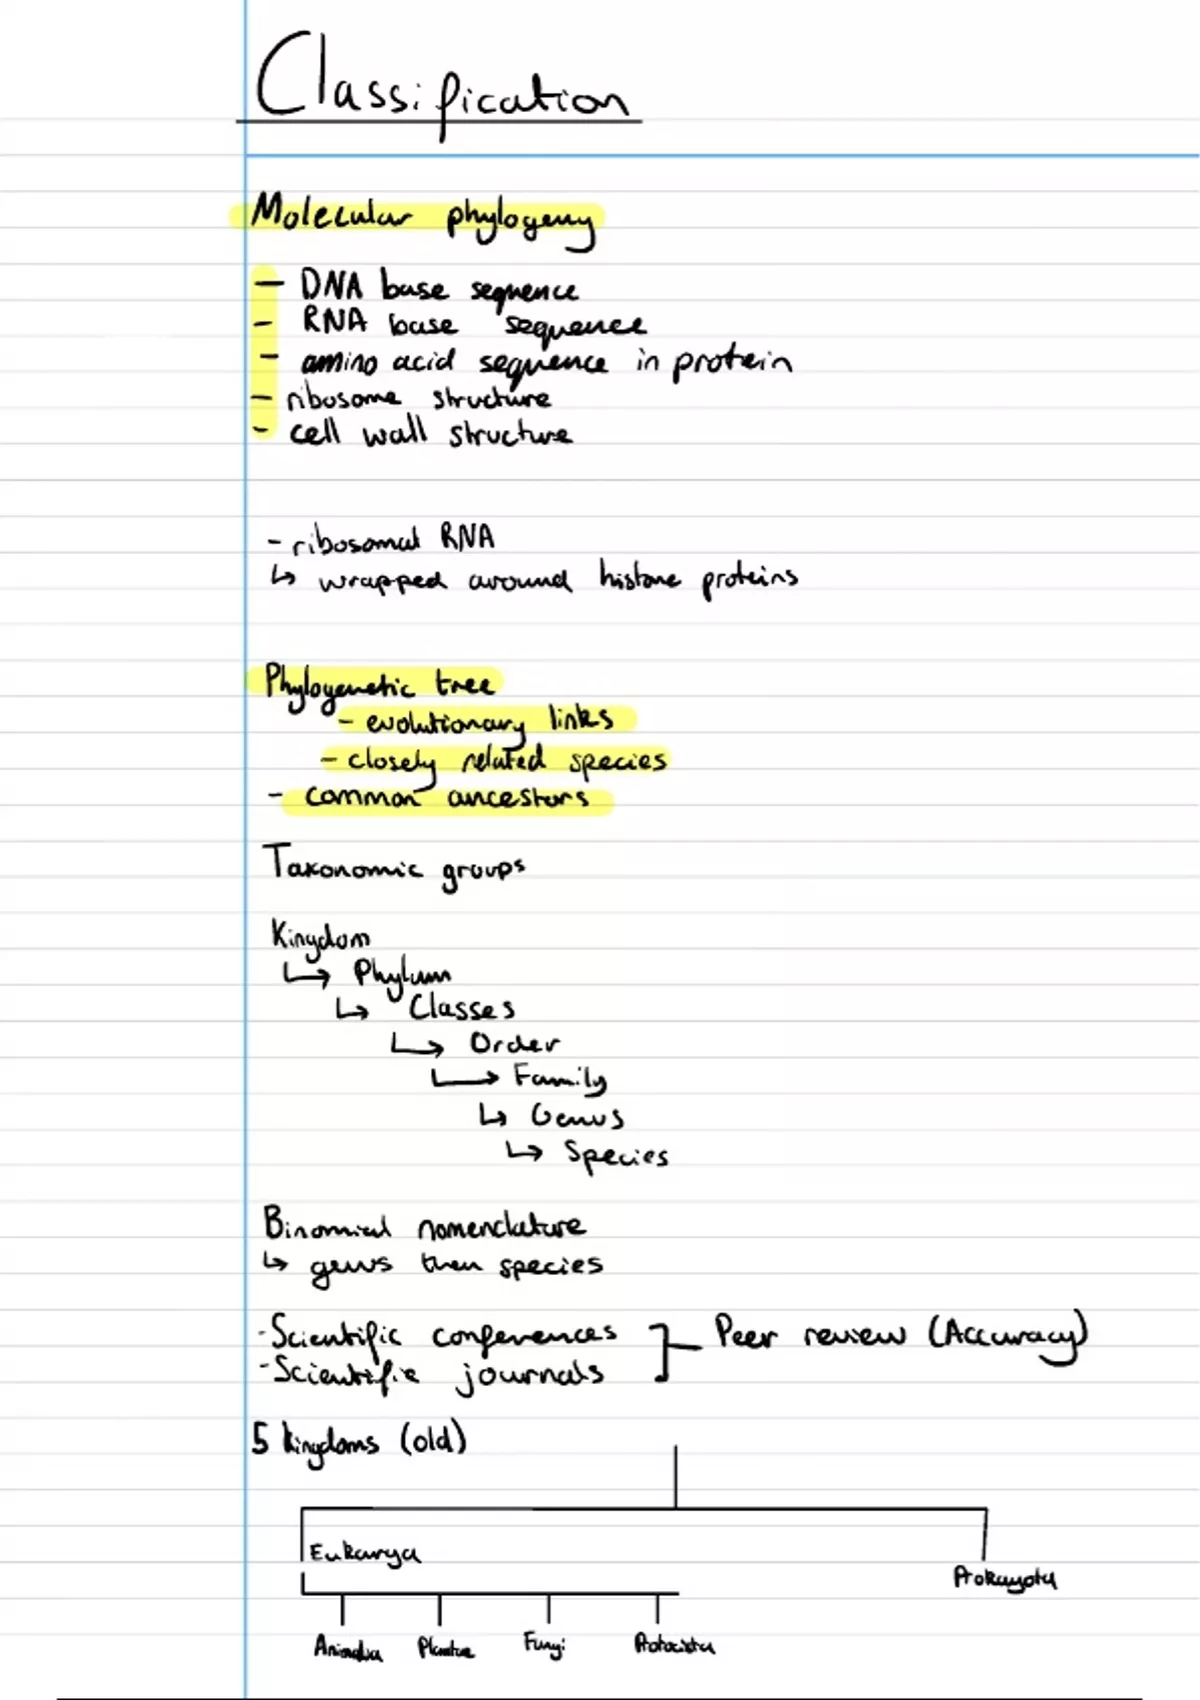 Classification
Molecular phylogeny
- DNA base sequence
- RNA base sequence
- amino acid sequence in protein
- ribosome structure
- cell wall structure
- ribosomal RNA
↳ wrapped around histone proteins
Phylogenetic tree
- evolutionary links
- closely related species
- common ancestors
Taxonomic groups
Kingdom
↳ Phylum
↳ Classes
↳ Order
↳ Family
↳ Genus
↳ Species
Binomial nomenclature
↳ genus then species
- Scientific conferences
- Scientific journals
Peer review (Accuracy)
5 kingdoms (old)
Eukarya
Prokaryota
Animalia Plantae Fungi Protoctista